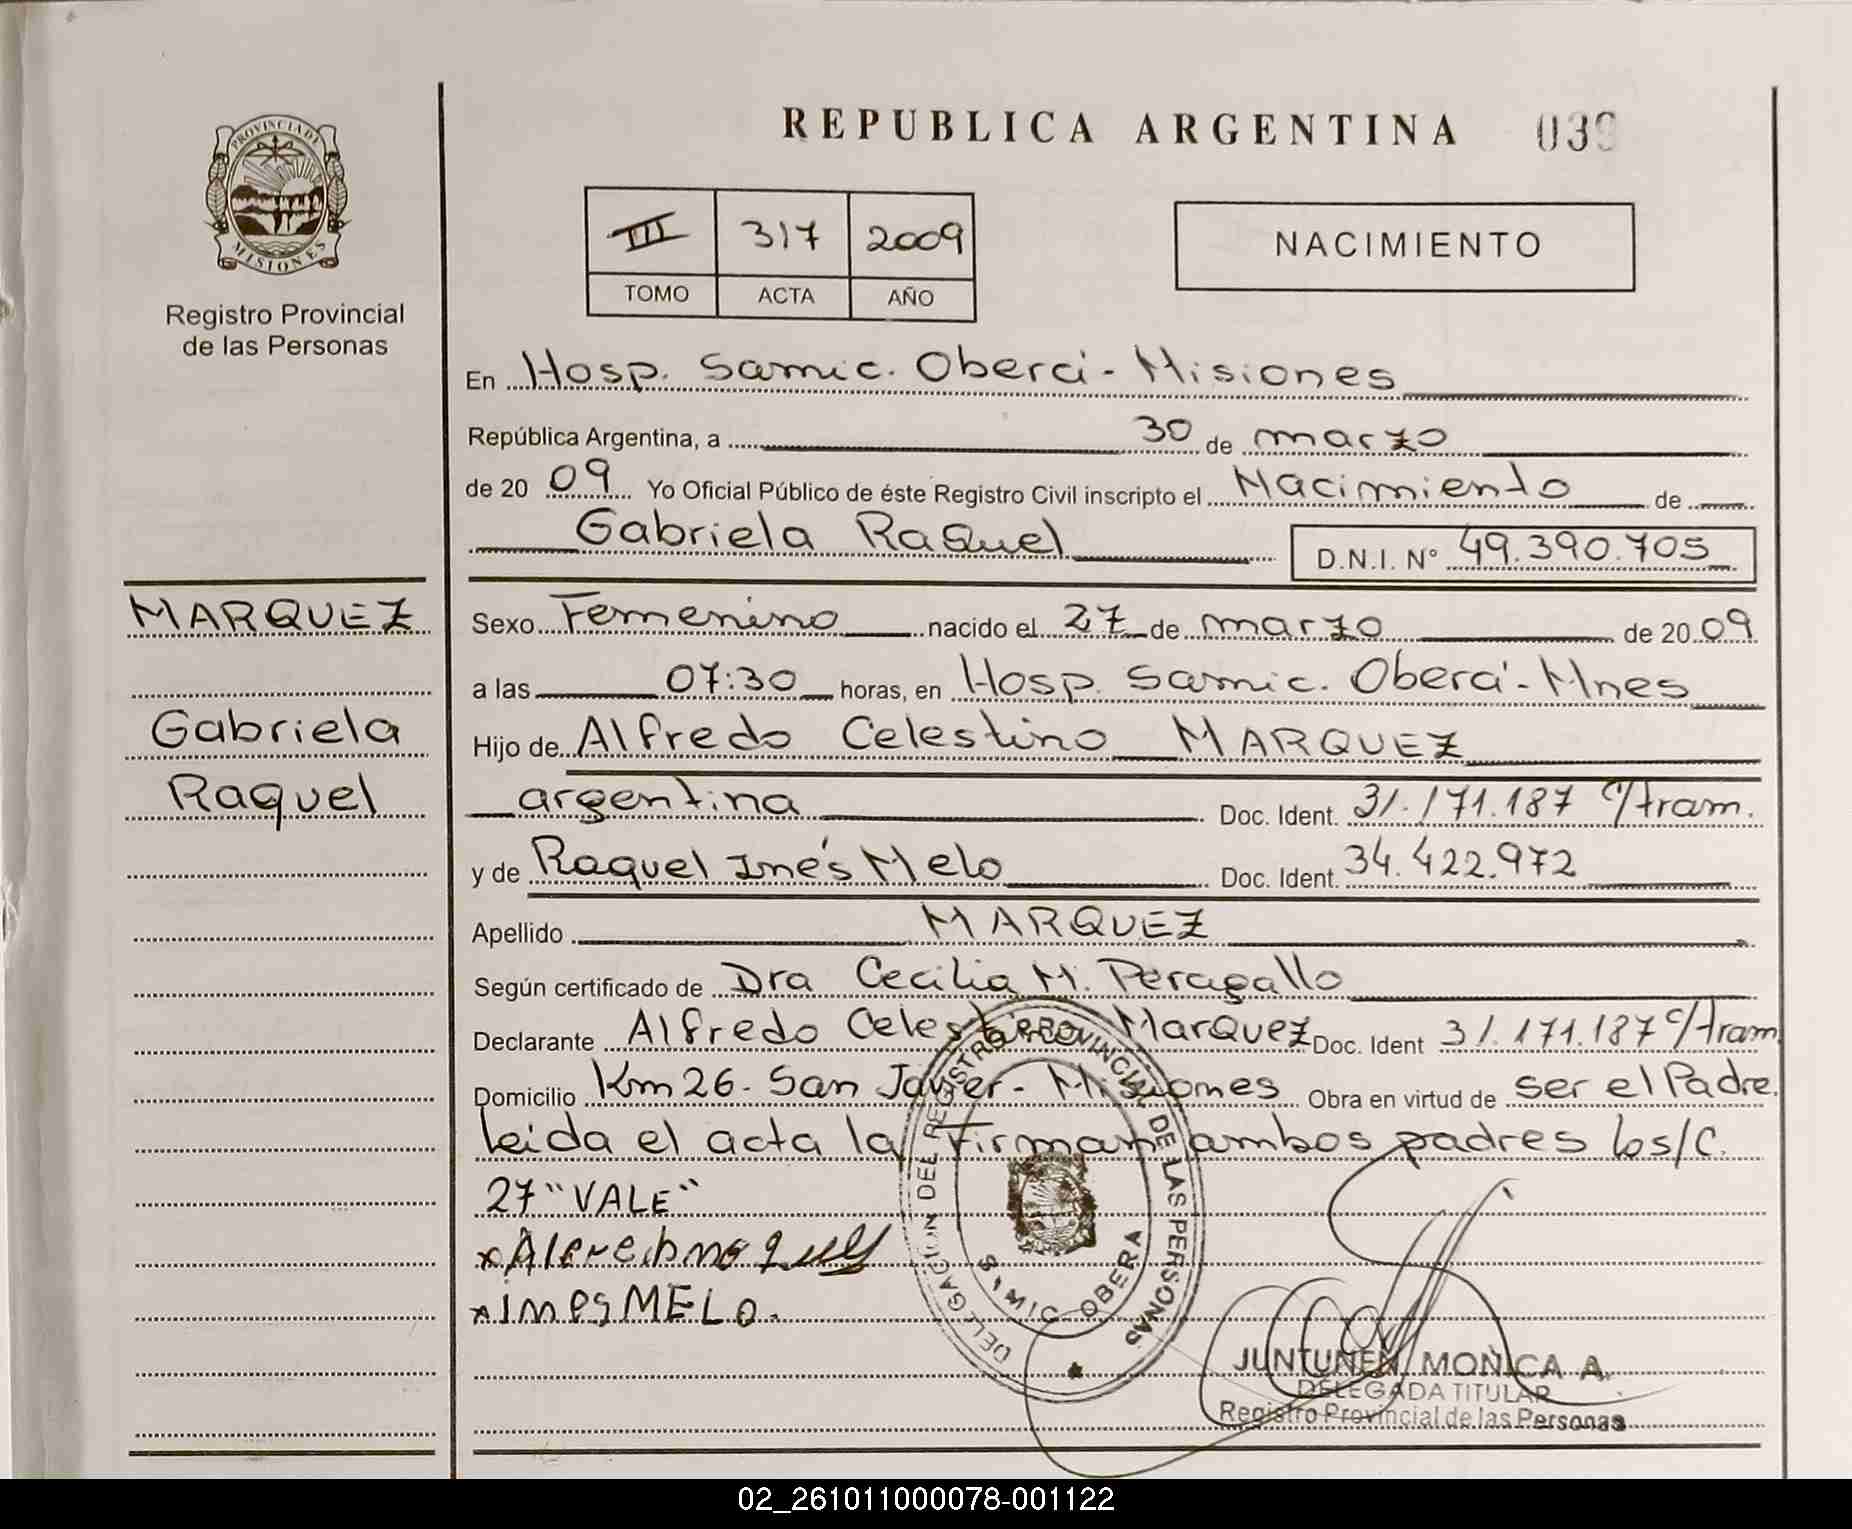 REPUBLICA ARGENTINA 039
PROVINCIA DE
MISIONES
Registro Provincial
de las Personas
III 317 2009
TOMO ACTA AÑO
NACIMIENTO
En Hosp. Samic. Oberá - Misiones
República Argentina, a 30 de marzo
de 20 09 Yo Oficial Público de éste Registro Civil inscripto el Nacimiento de
Gabriela RaQuel D.N.I. N° 49.390.705
MARQUEZ
Gabriela
Raquel
Sexo Femenino nacido el 27 de marzo de 20 09
a las 07:30 horas, en Hosp. Samic. Oberá - Mnes
Hijo de Alfredo Celestino MARQUEZ
argentina Doc. Ident. 31.171.187 C/tram.
y de Raquel Inés Melo Doc. Ident. 34.422.972
Apellido MARQUEZ
Según certificado de Dra Cecilia M. Peragallo
Declarante Alfredo Celestino MarQuez Doc. Ident 31.171.187 C/tram
Domicilio Km 26 - San Javier - Misiones Obra en virtud de ser el Padre.
Leida el acta la Firman ambos padres los/C.
27 "VALE"
x
x INES MELO.
DELEGACION DEL REGISTRO PROVINCIAL DE LAS PERSONAS
OBERA
JUNTUNEN, MONICA A.
DELEGADA TITULAR
Registro Provincial de las Personas
02_261011000078-001122